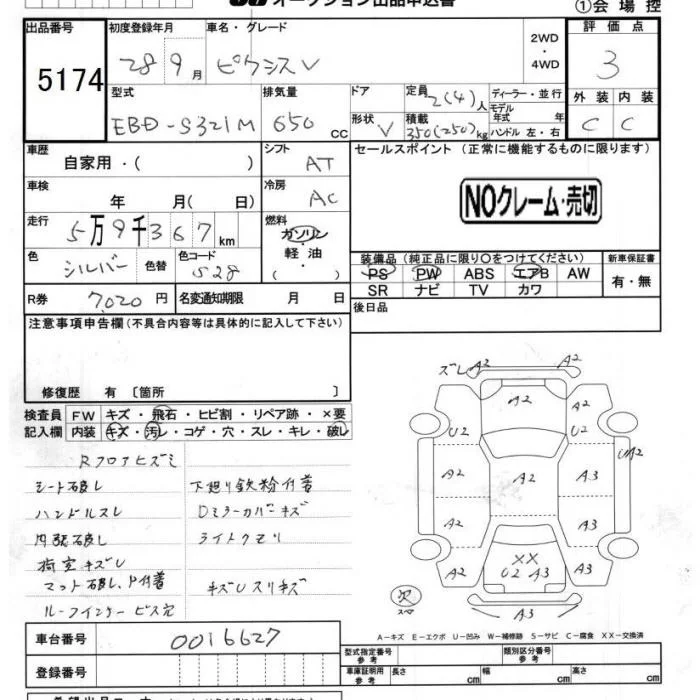 オークション出品申込書 ①会場控
出品番号 初度登録年月 車名・グレード 評価点
5174
28 9月 ピクシスV 2WD・4WD 3
型式 排気量 ドア 定員 2(4)人 ディーラー・並行 外装 内装
EBD-S321M 650cc 形状 V 積載 350(250)kg モデル年式 年 ハンドル 左・右 C C
車歴 自家用・( ) シフト AT セールスポイント (正常に機能するものに限ります)
車検 年 月( 日) 冷房 AC
NOクレーム・売切
走行 5万9千367km 燃料 ガソリン・軽油・( )
色 シルバー 色替 色コード S28
装備品 (純正品に限り○をつけてください) 新車保証書
PS PW ABS エアB AW 有・無
SR ナビ TV カワ
R券 7,020円 名変通知期限 月 日 後日品
注意事項申告欄 (不具合内容等は具体的に記入して下さい)
修復歴 有 〔箇所 〕
検査員 FW キズ・飛石・ヒビ割・リペア跡・×要
記入欄 内装 キズ・汚レ・コゲ・穴・スレ・キレ・破レ
Rフロアヒズミ
シート破レ 下廻り鉄粉付着
ハンドルスレ Dミラーカバーキズ
内張破レ ライトクモリ
荷室キズU
マット破レ、P付着 キズUスリキズ
ルーフインナービス穴
ズレ A2 A2
A2 A2
U2 U2 UA2
A2 A2 A3
A2 A3
XX
A2 U2 A3 A2
A3
スペア
A－キズ E－エクボ U－凹み W－補修跡 S－サビ C－腐食 XX－交換済
車台番号 0016627
型式指定番号 参考 類別区分番号 参考
登録番号 車庫証明 参考 長さ cm 幅 cm 高さ cm